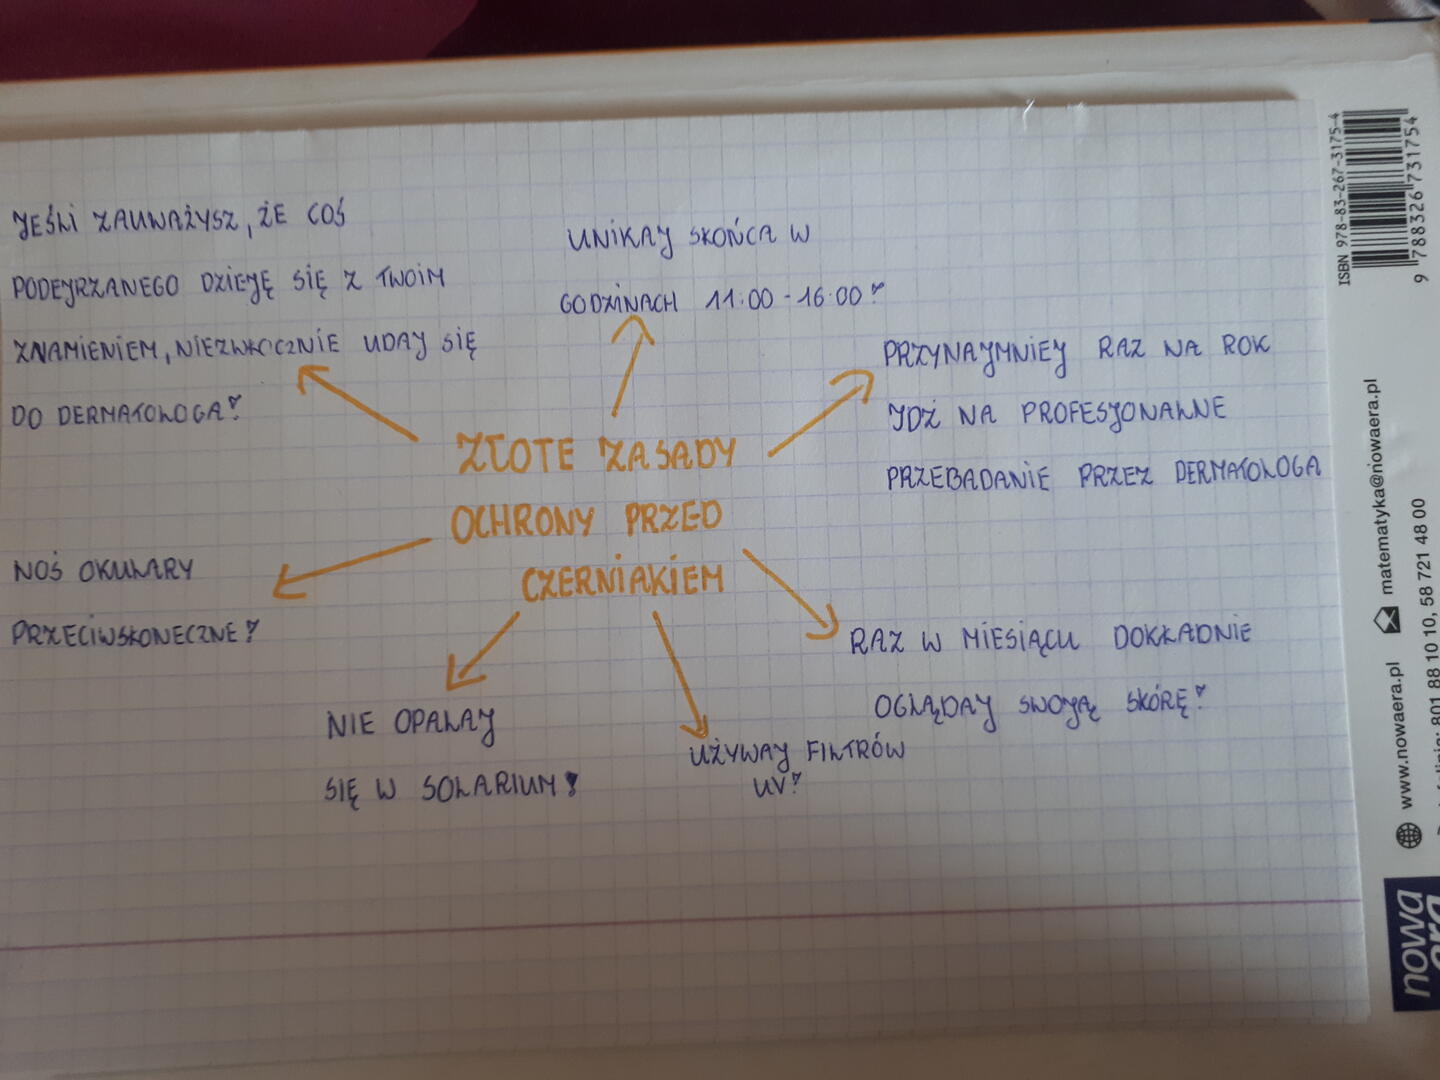 JEŚLI ZAUWAŻYSZ, ŻE COŚ
PODEJRZANEGO DZIEJĘ SIĘ Z TWOIM
ZNAMIENIEM, NIEZWŁOCZNIE UDAJ SIĘ
DO DERMATOLOGA!
UNIKAJ SŁOŃCA W
GODZINACH 11:00-16:00!
PRZYNAJMNIEJ RAZ NA ROK
IDŹ NA PROFESJONALNE
PRZEBADANIE PRZEZ DERMATOLOGA
ZŁOTE ZASADY
OCHRONY PRZED
CZERNIAKIEM
NOŚ OKULARY
PRZECIWSŁONECZNE!
NIE OPALAJ
SIĘ W SOLARIUM!
UŻYWAJ FILTRÓW
UV!
RAZ W MIESIĄCU DOKŁADNIE
OGLĄDAJ SWOJĄ SKÓRĘ!
ISBN 978-83-267-3175-4
9 788326 731754
matematyka@nowaera.pl
www.nowaera.pl
801 88 10 10, 58 721 48 00
nowa
era